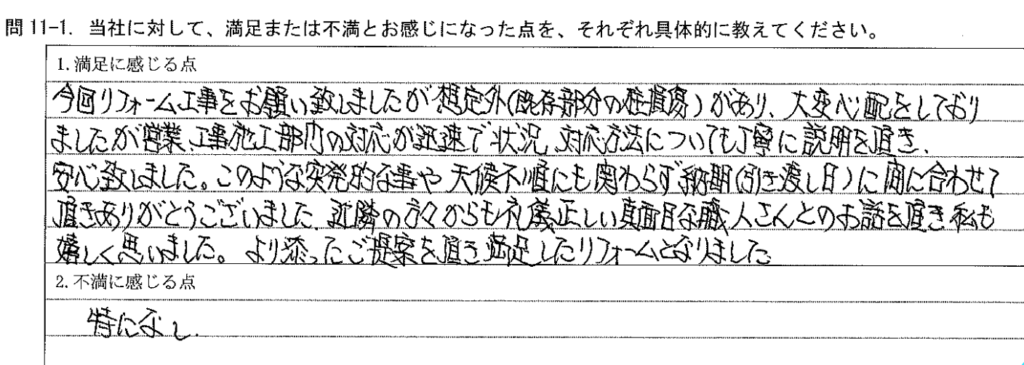 問11-1. 当社に対して、満足または不満とお感じになった点を、それぞれ具体的に教えてください。
1.満足に感じる点
今回リフォーム工事をお願い致しましたが想定外(既存部分の柱損傷)があり、大変心配をしており
ましたが営業、工事施工部門の対応が迅速で状況、対応方法についても丁寧に説明を頂き、
安心致しました。このような突発的な事や天候不順にも関わらず納期(引き渡し日)に間に合わせて
頂きありがとうございました。近隣の方々からも礼儀正しい真面目な職人さんとのお話を頂き私も
嬉しく思いました。より添ったご提案を頂き満足したリフォームとなりました
2.不満に感じる点
特になし.